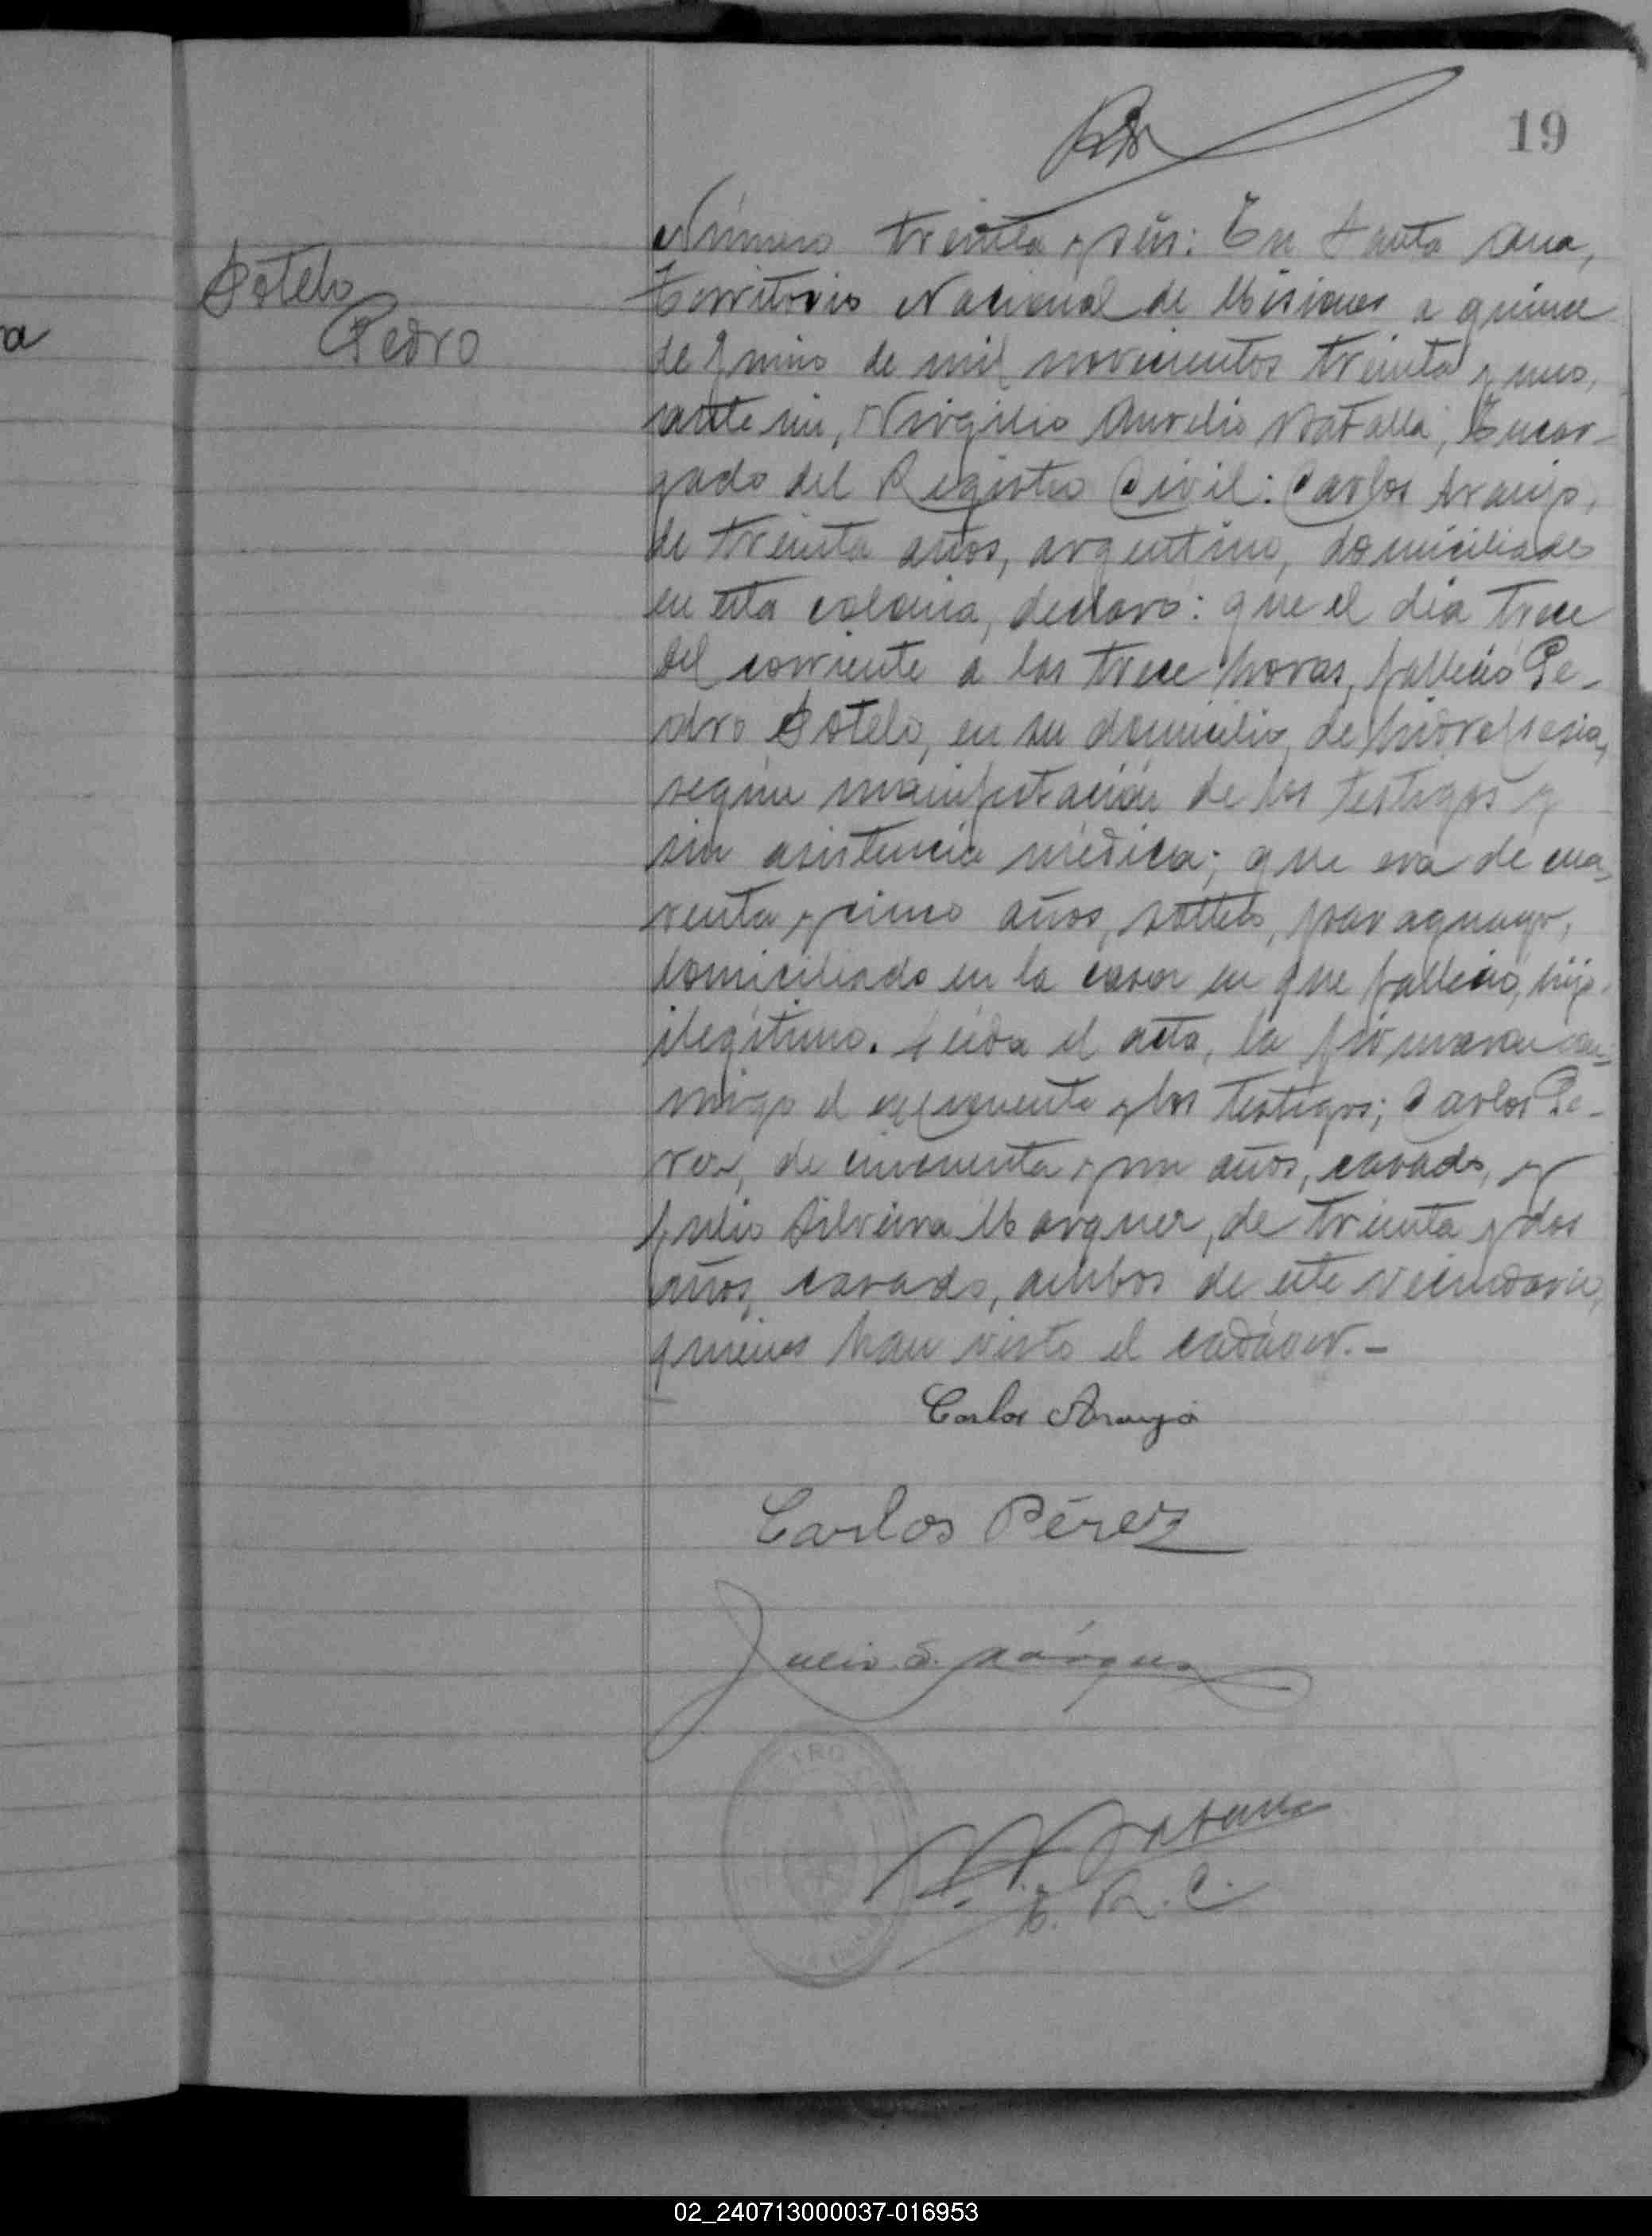 19
Sotelo
Pedro
a
Número treinta y seis: En Santa Ana,
Territorio Nacional de Misiones a quince
de Junio de mil novecientos treinta y uno,
ante mi, Virgilio Aurelio Batalla, Encar-
gado del Registro Civil: Carlos Araujo,
de treinta años, argentino, domiciliado
en esta colonia, declaró: que el día trece
del corriente a las trece horas, falleció Pe-
dro Sotelo, en su domicilio, de hidropesia,
según manifestación de los testigos y
sin asistencia médica; que era de cua-
renta y cinco años, soltero, paraguayo,
domiciliado en la casa en que falleció, hijo
ilegítimo. Leida el acta, la firmaron con-
migo el exponente y los testigos; Carlos Pe-
rez, de cincuenta y un años, casado, y
Julio Silveira Marquez, de treinta y dos
años, casado, ambos de este vecindario,
quienes han visto el cadáver.-
Carlos Araujo
Carlos Pérez
Julio S. Márquez
E. R. C.
02_240713000037-016953